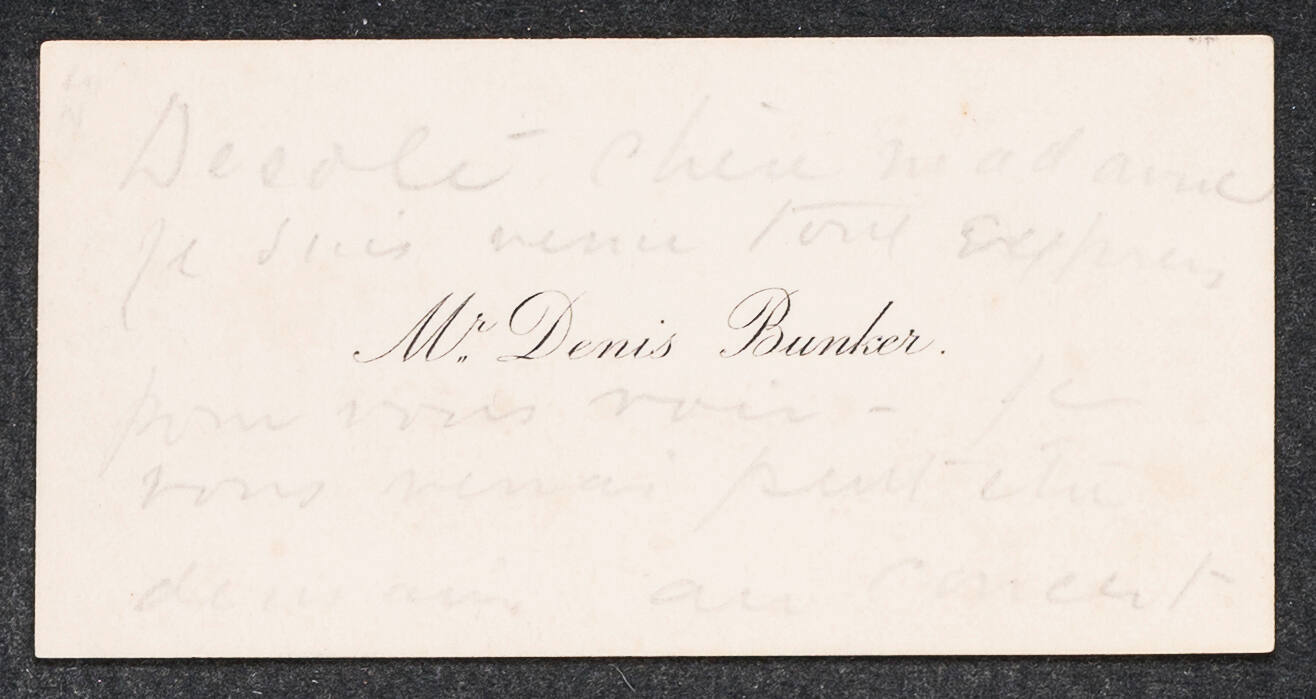 Desolé chère madame
je suis venu tout exprès
Mr. Denis Bunker.
pour vous voir - je
vous verrai peut etre
demain au concert